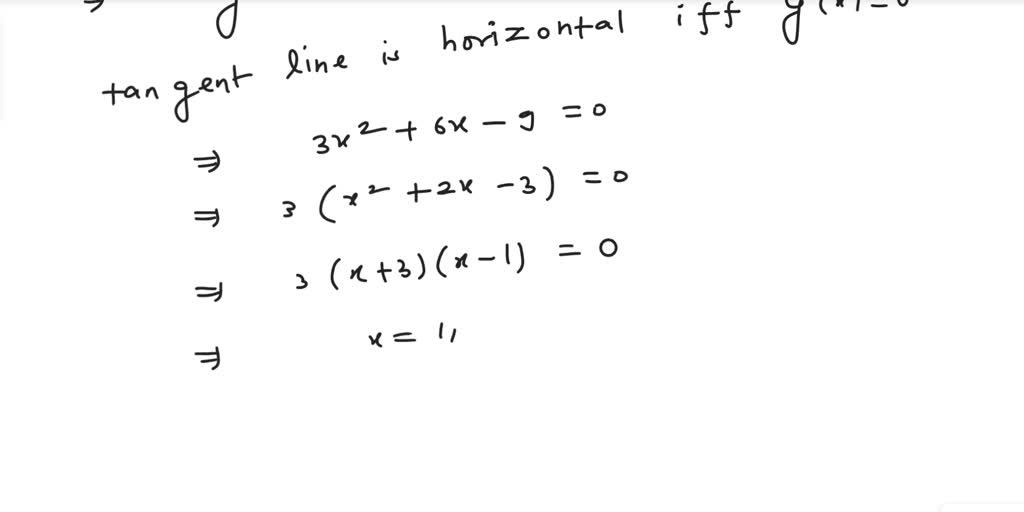 ⇒
tangent line is horizontal iff y'(x) = 0
⇒ 3x² + 6x - 9 = 0
⇒ 3 (x² + 2x - 3) = 0
⇒ 3 (x+3)(x-1) = 0
⇒ x = 1,